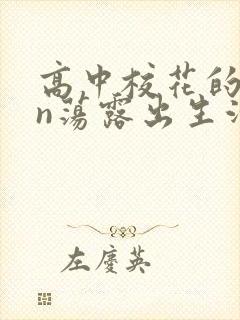 高中校花的
n荡露出生
左慶英